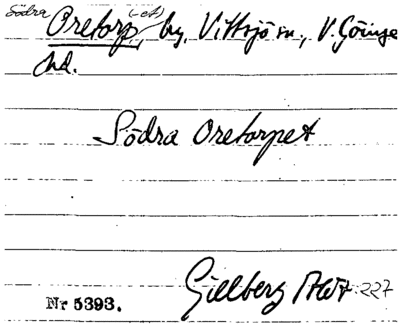 Södra Oretorp, (-et) by, Vittsjö sn., V. Göinge
hd.
Södra Oretorpet
Gillberg 227
Nr 5393.